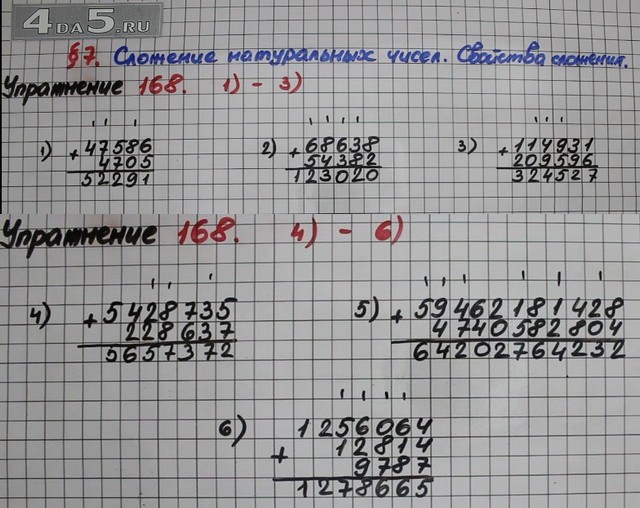 4DA5.RU
§7. Сложение натуральных чисел. Свойства сложения.
Упражнение 168. 1) - 3)
1) + 47586
4705
52291
2) + 68638
54382
123020
3) + 114931
209596
324527
Упражнение 168. 4) - 6)
4) + 5428735
228637
5657372
5) + 59462181428
4740582804
64202764232
6) 1256064
+ 12814
9787
1278665